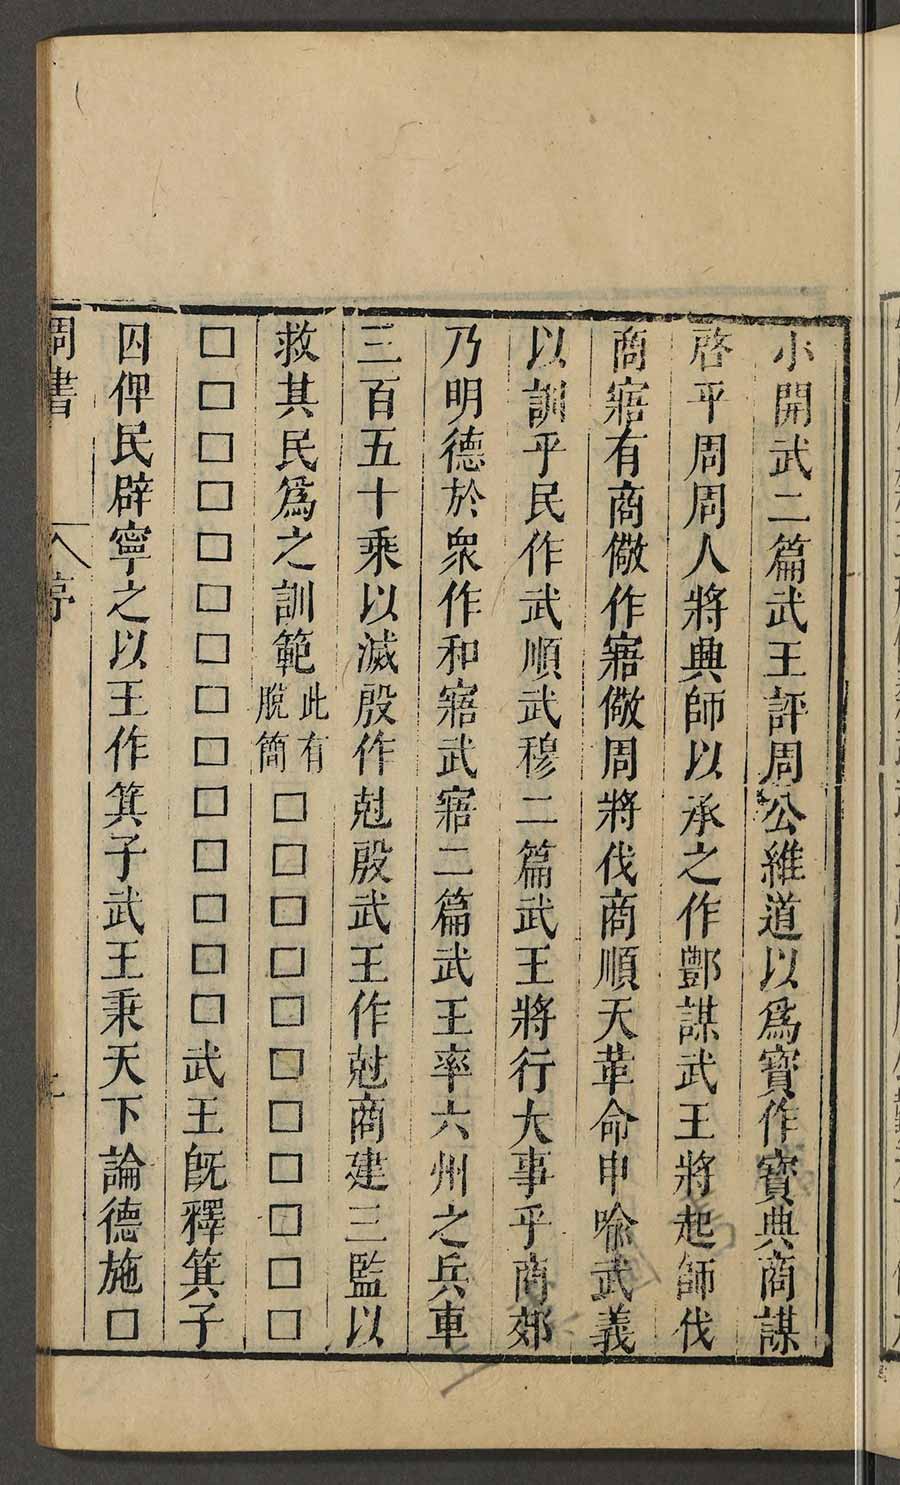 小開武二篇武王評周公維道以爲寶作寶典商謀
啓平周周人將興師以承之作酆謀武王將起師伐
商寤有商儆作寤儆周將伐商順天革命申喻武義
以訓乎民作武順武穆二篇武王將行大事乎商郊
乃明德於衆作和寤武寤二篇武王率六州之兵車
三百五十乘以滅殷作尅殷武王作尅商建三監以
救其民爲之訓範此有脫簡□□□□□□□□□□□
□□□□□□□□□□□□□□武王旣釋箕子
囚俾民辟寧之以王作箕子武王秉天下論德施□
周書 序